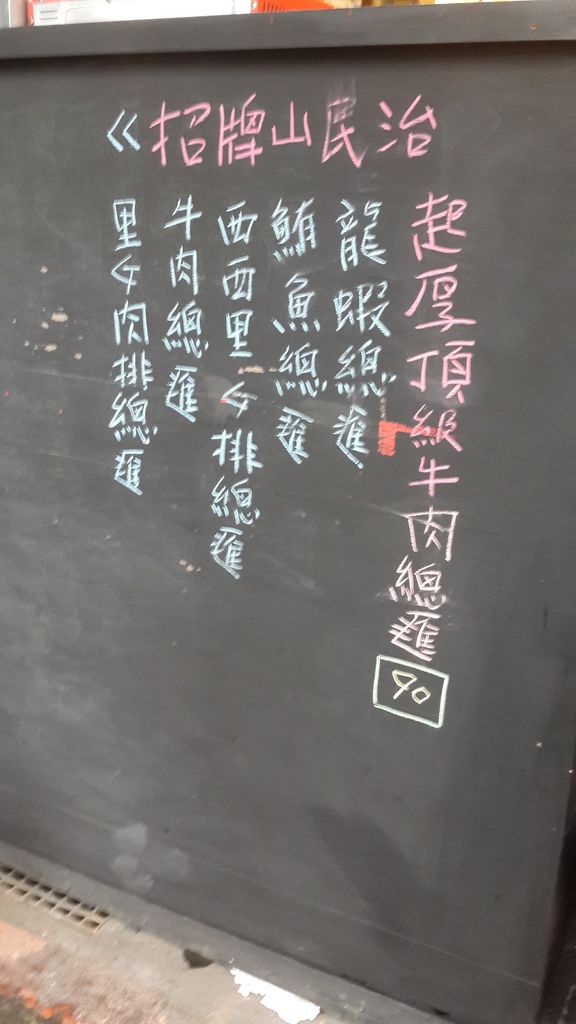 招牌山民治
起厚頂級牛肉總匯
90
龍蝦總匯
鮪魚總匯
西西里々排總匯
牛肉總匯
里々肉排總匯